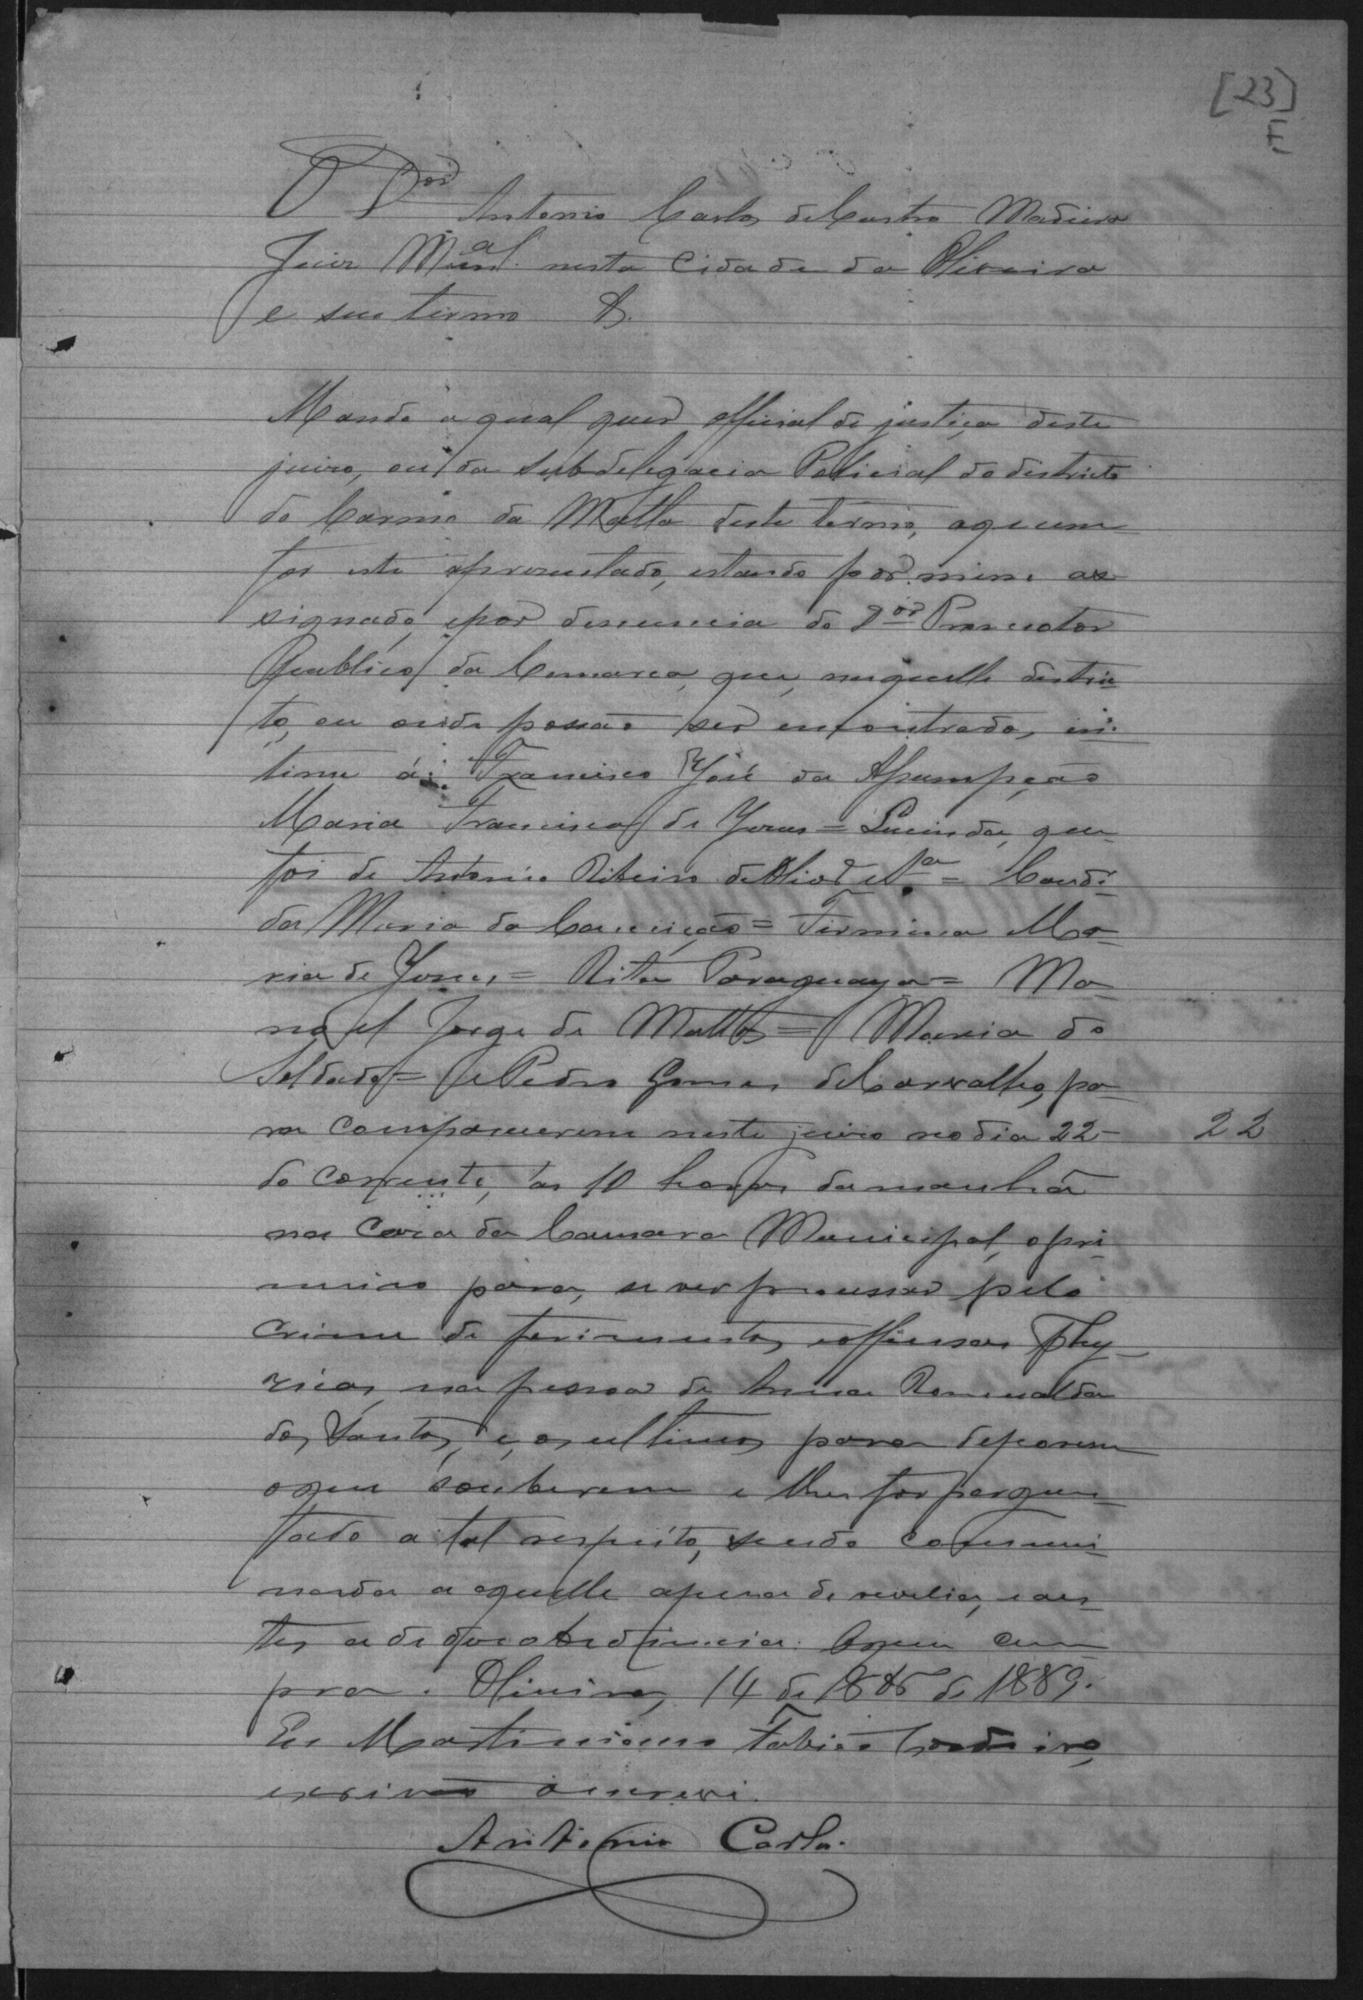 [23]
O Dor Antonio Carlos de Castro Madeira
Juiz Mual. nesta Cidade da Oliveira
e seu termo &.
Mando a qual quer official de justiça deste
juizo, ou da subdelegacia Policial do districto
do Carmo da Matta deste termo, a quem
for este apresentado, estando por mim as
signado, e por denuncia do Dor Promotor
Publico da Comarca, que, naquelle distric
to, ou onde possão ser encontrados, in
time á: Francisco José da Assumpção
Maria Francisca de Jesus = Lucinda, que
foi de Antonio Ribeiro de Olivra = Candi
da Maria da Conceição = Firmina Ma
ria de Jesus = Rita Paraguaya = Ma
noel Jorge de Mattos = Maria do
Soldado = e Pedro Gomes de Carvalho, pa
ra comparecerem neste juizo no dia 22
22
do corrente, ás 10 horas da manhã
na Casa da Camara Municipal, o pri
meiro para, se ver processar pelo
crime de ferimentos e offensas Phy
zicas, na pessoa de Anna Romualda
dos Santos, e, os ultimos para deporem
o que souberem e lhes for pergun
tado a tal respeito, sendo commi
nada a aquelle a pena de revelia, e aes
tes a de desobediencia. O que cum
pra. Oliveira, 14 de de 1889.
Eu Martiniano Fabião Cordeiro,
escrivão o escrevi.
Antonio Carlos.